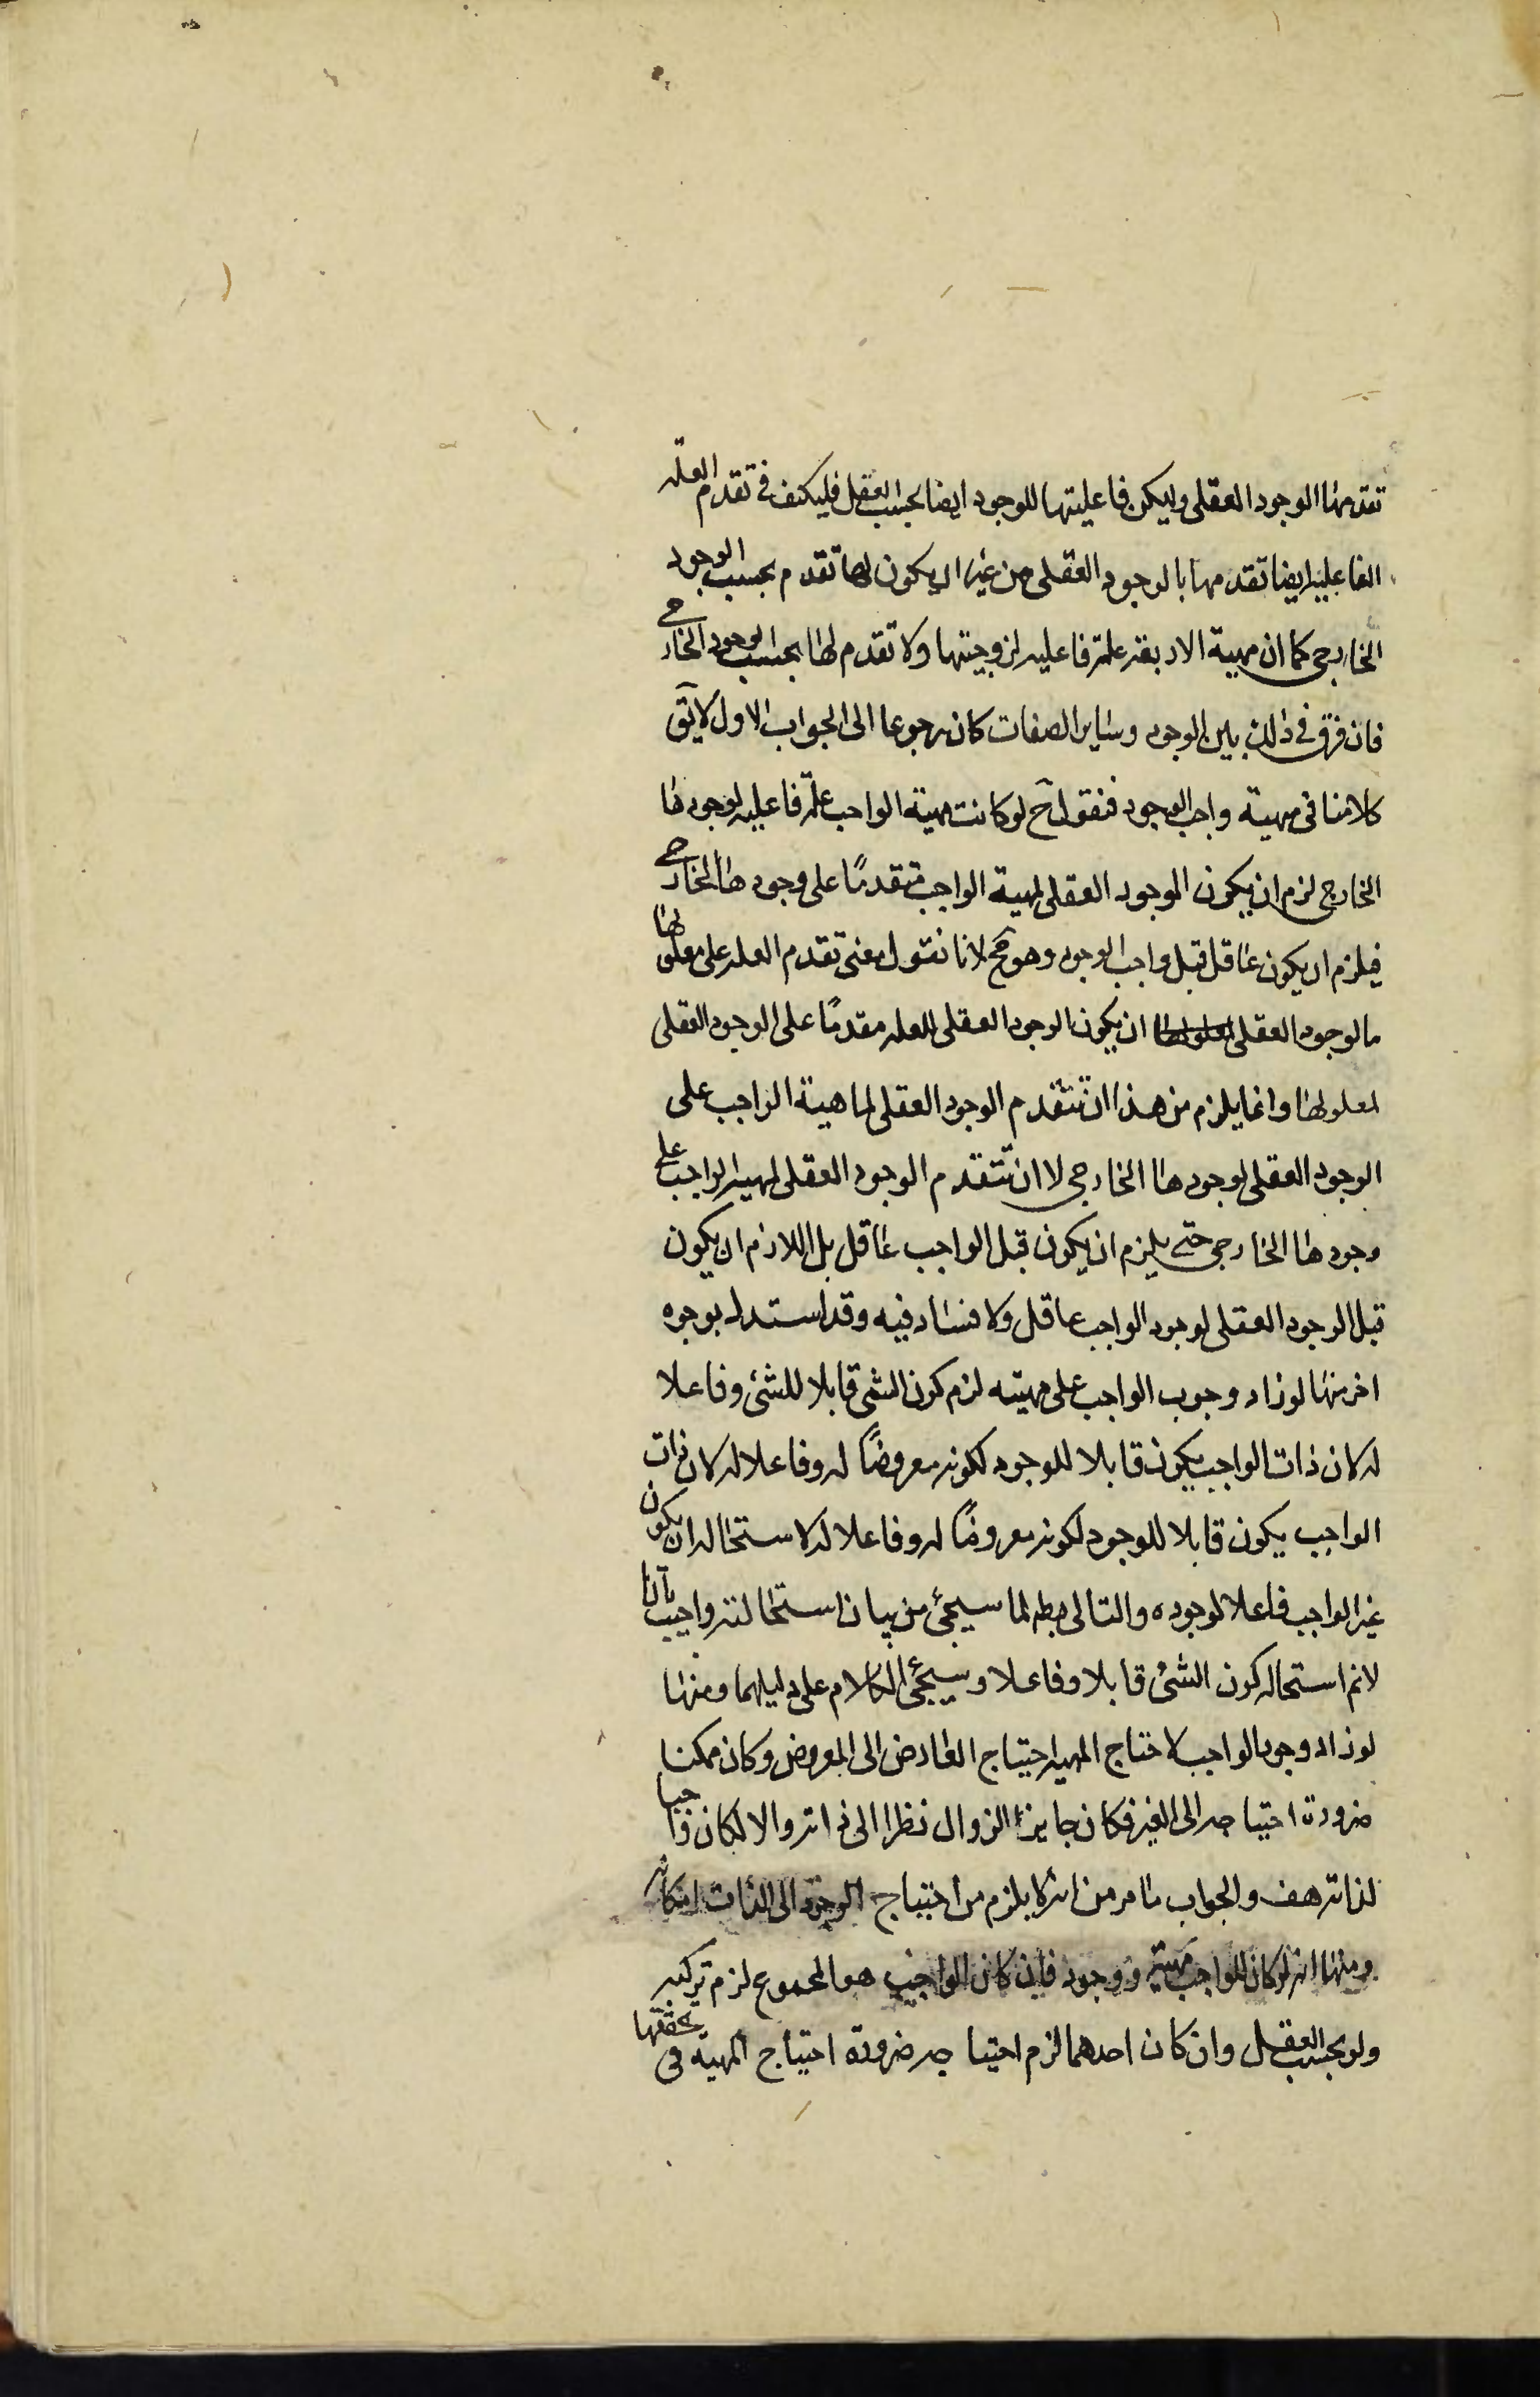 تقدمها الوجود العقلى وليكن فاعليتها للوجود ايضا بحسب العقل فليكف فى تقدم العلة
الفاعلية ايضا تقدمها بالوجود العقلى من غير ان يكون لها تقدم بحسب الوجود
الخارجى كما ان مهية الاربعة علة فاعلية لزوجيتها ولا تقدم لها بحسب الوجود الخارجى
فان فرق فى ذلك بين الوجود وساير الصفات كان رجوعا الى الجواب الاول لا يق
كلامنا فى مهية واجب الوجود فنقول ح لو كانت مهية الواجب علة فاعلية لوجودها
الخارجى لزم ان يكون الوجود العقلى لمهية الواجب متقدمًا على وجودها الخارجى
فيلزم ان يكون عاقل قبل واجب الوجود وهو مح لانا نقول معنى تقدم العلة على معلولها
بالوجود العقلى ان يكون الوجود العقلى للعلة مقدمًا على الوجود العقلى
لمعلولها وانما يلزم من هذا ان تتقدم الوجود العقلى لماهية الواجب على
الوجود العقلى لوجودها الخارجى لا ان تتقدم الوجود العقلى لمهية الواجب على
وجودها الخارجى حتى يلزم ان يكون قبل الواجب عاقل بل اللازم ان يكون
قبل الوجود العقلى لوجود الواجب عاقل ولا فساد فيه وقد استدل بوجوه
اخر منها لو زاد وجوب الواجب على مهيته لزم كون الشى قابلا للشئ وفاعلا
له لان ذات الواجب يكون قابلا للوجود لكونه معروضًا له وفاعلا له لان ذات
الواجب يكون قابلا للوجود لكونه معروضًا له وفاعلا له لاستحالة ان يكون
غير الواجب فاعلا لوجوده والتالى بط لما سيجئ من بيان استحالته واجيب بانا
لانم استحالة كون الشئ قابلا وفاعلا وسيجئ الكلام على دليلهما ومنها
لو زاد وجود الواجب لاحتاج المهية احتياج العارض الى المعروض وكان ممكنا
ضرورة احتياجه الى الغير فكان جايز الزوال نظرا الى ذاته والا لكان واجبا
لذاته هف والجواب ما مر من انه لا يلزم من احتياج الوجود الى الذات امكانه
ومنها انه لو كان للواجب مهية ووجود فان كان الواجب هو المجموع لزم تركبه
ولو بحسب العقل وان كان احدهما لزم احتياجه ضرورة احتياج المهية فى تحققها